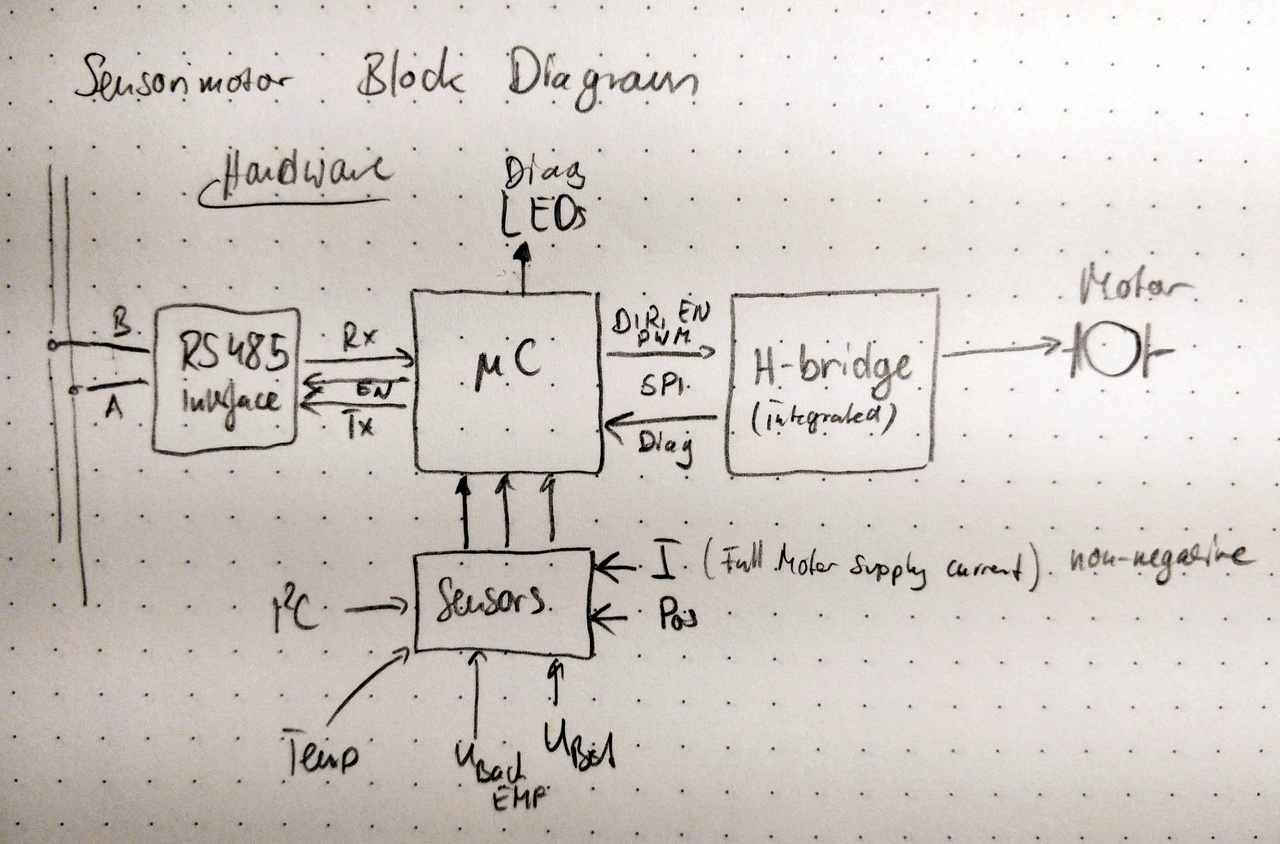 Sensorimotor Block Diagram
Hardware
Diag
LEDs
B
A
RS485
interface
Rx
EN
Tx
µC
DIR, EN
PWM
SPI
Diag
H-bridge
(integrated)
Motor
I (Full Motor supply current) non-negative
Pos
Sensors
I²C
Temp
U Back
EMF
U Bat